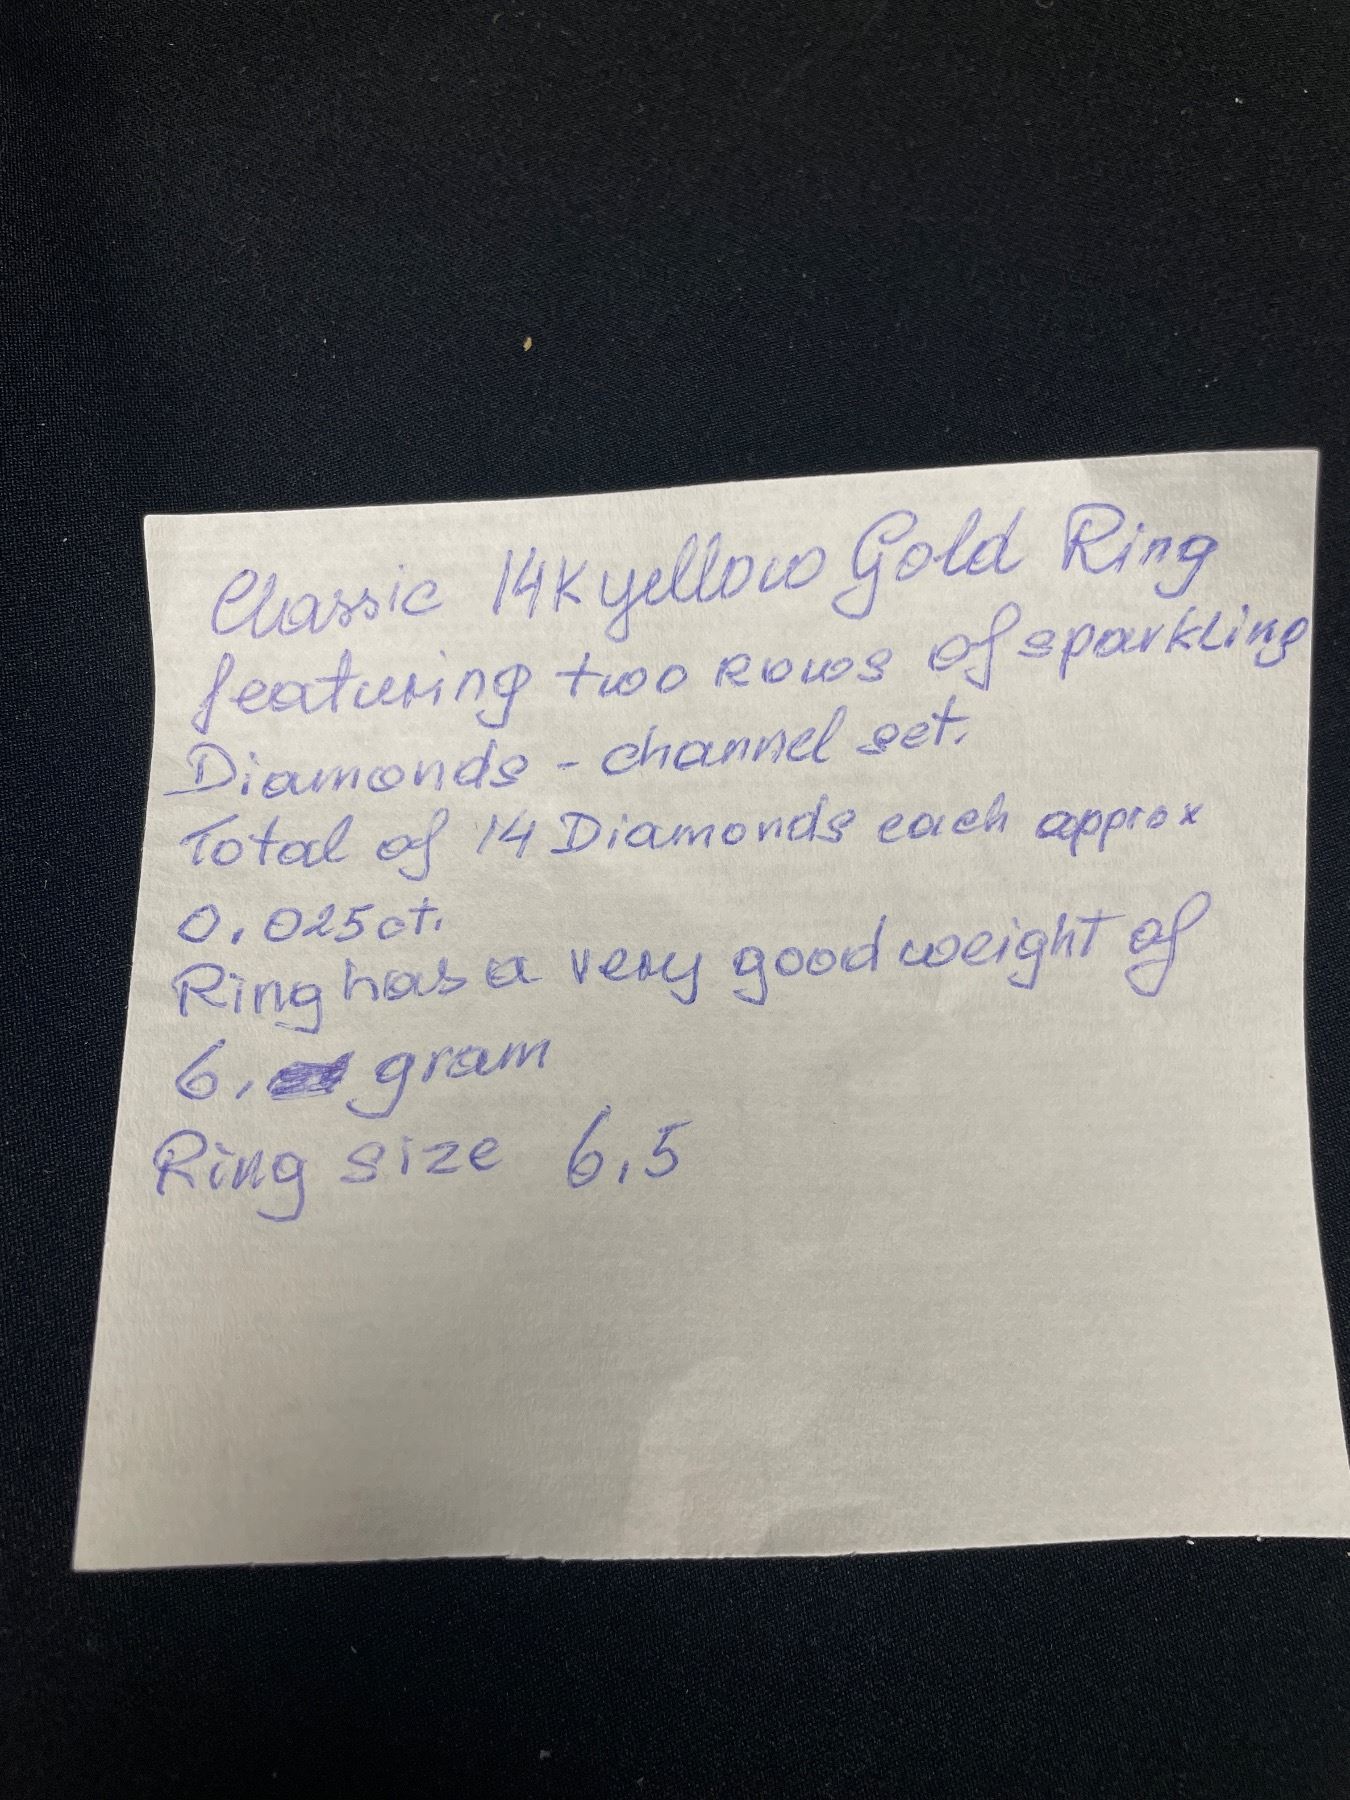 Classic 14k yellow Gold Ring
featuring two rows of sparkling
Diamonds - channel set.
Total of 14 Diamonds each approx
0.025ct.
Ring has a very good weight of
6. gram
Ring size 6.5